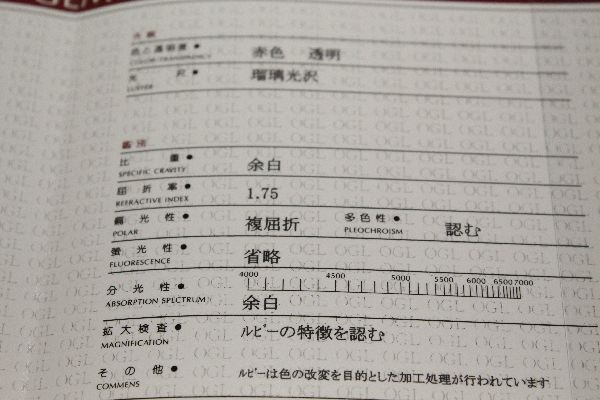 外観
色と透明度● 赤色 透明
COLOR・TRANSPARENCY
光沢● 瑠璃光沢
LUSTER
鑑別
比重● 余白
SPECIFIC CRAVITY
屈折率● 1.75
REFRACTIVE INDEX
偏光性● 複屈折 多色性● 認む
POLAR PLEOCHROISM
螢光性● 省略
FLUORESCENCE
4000 4500 5000 5500 6000 6500 7000
分光性● 余白
ABSORPTION SPECTRUM
拡大検査● ルビーの特徴を認む
MAGNIFICATION
その他● ルビーは色の改変を目的とした加工処理が行われています
COMMENS